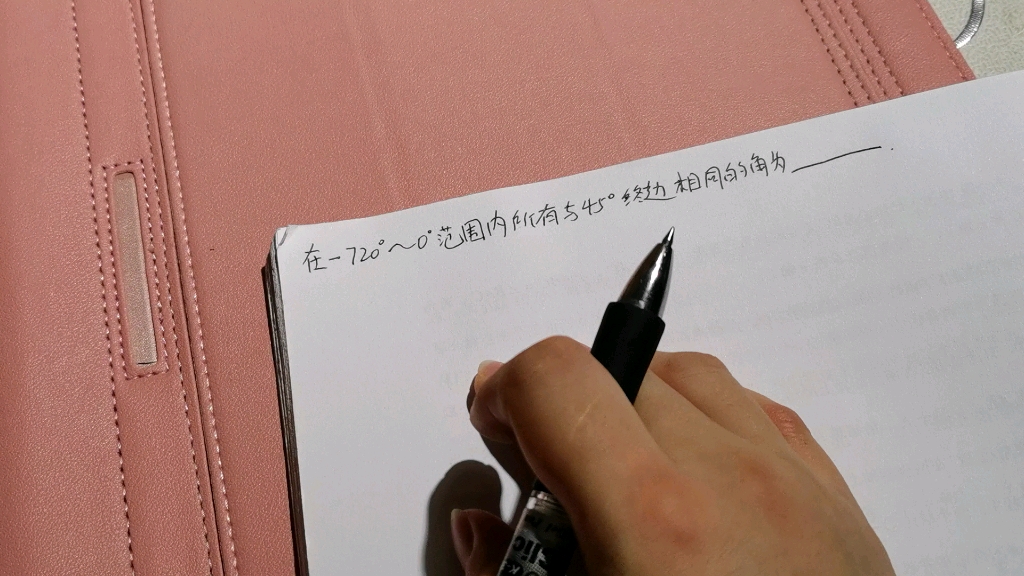 在-720°～0°范围内所有与45°终边相同的角为______.